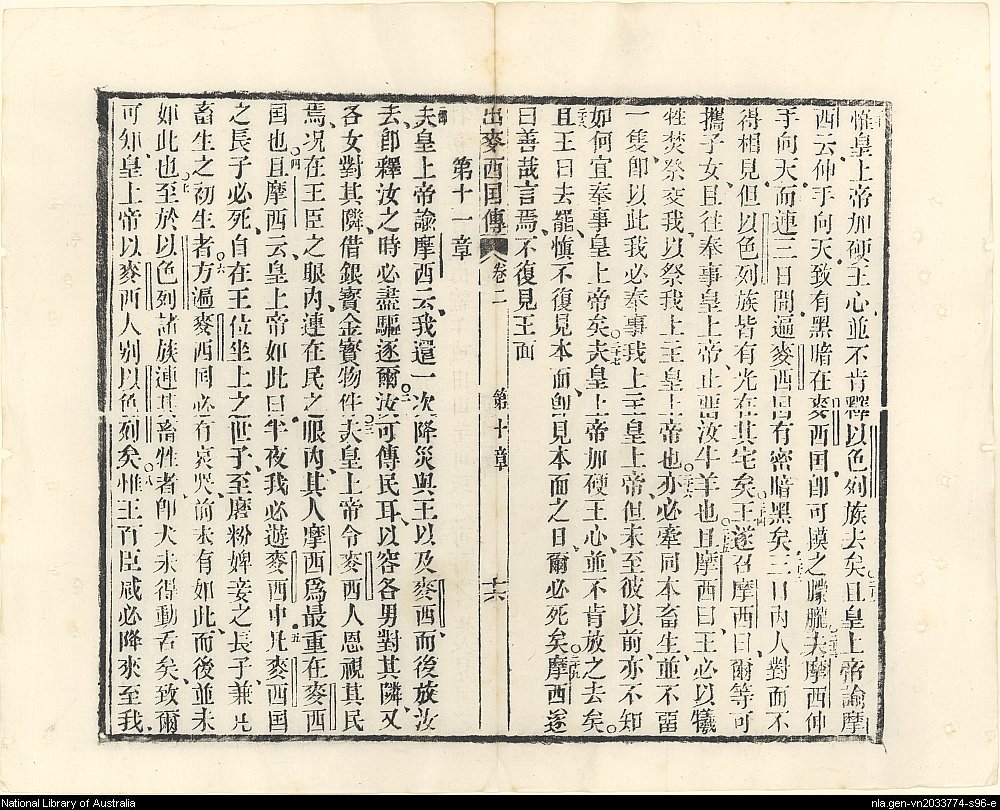 惟皇上帝加硬王心並不肯釋以色列族去矣○二十一且皇上帝諭摩
西云伸手向天致有黑暗在麥西国卽可摸之朦朧○二十二夫摩西伸
手向天而連三日間遍麥西国有密暗黑矣○二十三三日內人對而不
得相見但以色列族皆有光在其宅矣○二十四王遂召摩西曰爾等可
攜子女且往奉事皇上帝止畱汝牛羊也○二十五且摩西曰王必以犧
牲焚祭交我以祭我上主皇上帝也○二十六亦必牽同本畜生並不畱
一隻卽以此我必奉事我上主皇上帝但未至彼以前亦不知
如何宜奉事皇上帝矣○二十七夫皇上帝加硬王心並不肯放之去矣○
二十八且王曰去罷愼不復見本面卽見本面之日爾必死矣○二十九摩西遂
曰善哉言焉不復見王面
出麥西国傳 卷二 第十章 十六
第十一章
夫皇上帝諭摩西云我還一次降災與王以及麥西而後放汝
去卽釋汝之時必盡驅逐爾○二汝可傳民耳以容各男對其隣又
各女對其隣借銀寶金寶物件○三夫皇上帝令麥西人恩視其民
焉况在王臣之眼內連在民之眼內其人摩西爲最重在麥西
国也○四且摩西云皇上帝如此曰半夜我必遊麥西中○五凡麥西国
之長子必死自在王位坐上之世子至磨粉婢妾之長子兼凡
畜生之初生者○六方遍麥西国必有哀哭前未有如此而後並未
如此也○七至於以色列諸族連其畜牲者卽犬未得動舌矣致爾
可知皇上帝以麥西人别以色列矣○八惟王百臣咸必降來至我
National Library of Australia
nla.gen-vn2033774-s96-e